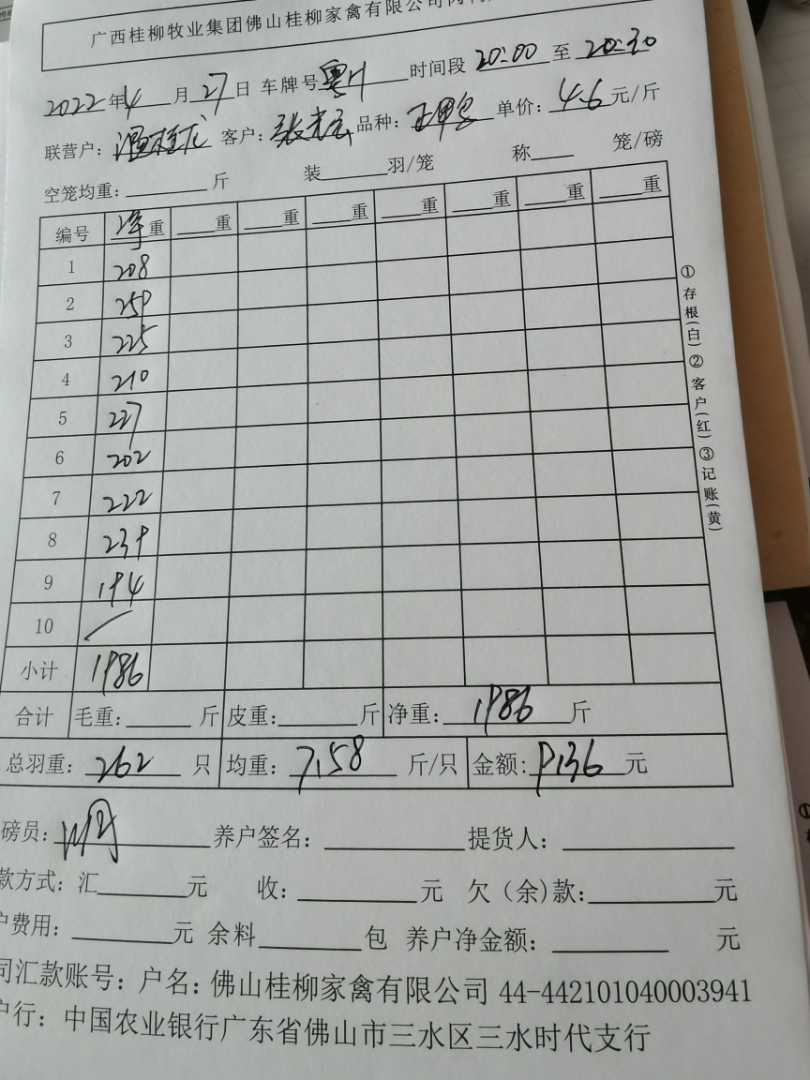 广西桂柳牧业集团佛山桂柳家禽有限公司
2022年4月27日 车牌号粤 时间段 20:00 至 20:30
联营户: 客户:张 品种: 单价: 4.6 元/斤
空笼均重: 斤 装 羽/笼 称 笼/磅
编号 净重 重 重 重 重 重 重 重
1 208
2 259
3 225
4 210
5 227
6 202
7 222
8 239
9 194
10 /
小计 1986
合计 毛重: 斤 皮重: 斤 净重: 1986 斤
总羽重: 262 只 均重: 7.58 斤/只 金额: 9136 元
磅员: 养户签名: 提货人:
款方式: 汇 元 收: 元 欠(余)款: 元
户费用: 元 余料 包 养户净金额: 元
司汇款账号: 户名: 佛山桂柳家禽有限公司 44-442101040003941
户行: 中国农业银行广东省佛山市三水区三水时代支行
①存根(白)②客户(红)③记账(黄)